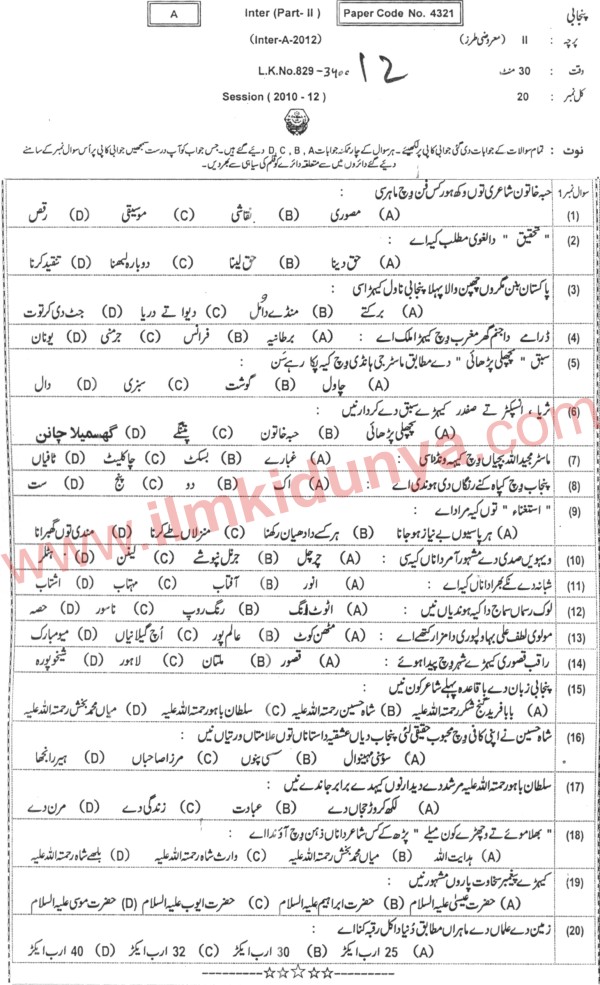 A Inter (Part- II ) Paper Code No. 4321 پنجابی
(Inter-A-2012) پرچہ : II (معروضی طرز)
L.K.No.829 -3400 12 وقت : 30 منٹ
Session ( 2010 - 12 ) کل نمبر : 20
نوٹ : تمام سوالات کے جوابات دی گئی جوابی کاپی پر لکھیئے ۔ ہر سوال کے چار ممکنہ جوابات D, C, B, A دیئے گئے ہیں۔ جس جواب کو آپ درست سمجھیں جوابی کاپی پر اُس سوال نمبر کے سامنے
دیئے گئے دائروں میں سے متعلقہ دائرے کو قلم کی سیاہی سے بھر دیں۔
سوال نمبر 1 حبہ خاتون شاعری توں وکھ ہور کس فن وچ ماہر سی :
(1) (A) مصوری (B) نقاشی (C) موسیقی (D) رقص
(2) " تحقیق " دا لغوی مطلب کیہ اے :
(A) حق دینا (B) حق لینا (C) دوبارہ لبھنا (D) تنقید کرنا
(3) پاکستان بنن مگروں چھپن والا پہلا پنجابی ناول کیہڑا سی :
(A) برکتے (B) منڈے دا مُل (C) دیوا تے دریا (D) جٹ دی کرتوت
(4) ڈرامے دا جنم گھر مغرب وچ کیہڑا ملک اے : (A) برطانیہ (B) فرانس (C) جرمنی (D) یونان
(5) سبق " پچھلی پڑھائی " دے مطابق ماسٹر جی ہانڈی وچ کیہ پکا رہے سَن :
(A) چاول (B) گوشت (C) سبزی (D) دال
(6) ثریا ، انسپکٹر تے صفدر کیہڑے سبق دے کردار نیں :
(A) پچھلی پڑھائی (B) حبہ خاتون (C) پتنگے (D) گھسمیلا چانن
(7) ماسٹر مجید اللہ بچیاں وچ کیہہ ونڈدا سی : (A) غبارے (B) بسکٹ (C) چاکلیٹ (D) ٹافیاں
(8) پنجاب وچ کپاہ کنے رنگاں دی ہوندی اے : (A) اک (B) دو (C) پنج (D) ست
(9) " استغناء " توں کیہ مراد اے :
(A) ہر پاسیوں بے نیاز ہو جانا (B) ہر کسے دا دھیان رکھنا (C) منزلاں طے کرنا (D) مندی توں گھبرانا
(10) ویہویں صدی دے مشہور آمر دا ناں کیہ سی : (A) چرچل (B) جرنل نپوشے (C) لینن (D) ہٹلر
(11) شبانہ دے نکے بھرا دا ناں کیہ اے : (A) انور (B) آفتاب (C) مہتاب (D) اشتاب
(12) لوک رسماں سماج دا کیہ ہوندیاں نیں : (A) انوٹ انگ (B) رنگ روپ (C) ناسور (D) حصہ
(13) مولوی لطف علی بہاولپوری دا مزار کتھے اے : (A) مٹھن کوٹ (B) عالم پور (C) اُچ گیلانیاں (D) میو مبارک
(14) راقب قصوری کیہڑے شہر وچ پیدا ہوئے : (A) قصور (B) ملتان (C) لاہور (D) شیخوپورہ
(15) پنجابی زبان دے باقاعدہ پہلے شاعر کون نیں :
(A) بابا فرید گنج شکر رحمتہ اللہ علیہ (B) شاہ حسین رحمتہ اللہ علیہ (C) سلطان باہو رحمتہ اللہ علیہ (D) میاں محمد بخش رحمتہ اللہ علیہ
(16) شاہ حسین نے اپنی کافی وچ محبوب حقیقی لئی پنجاب دیاں عشقیہ داستاناں توں علامتاں ورتیاں نیں :
(A) سوہنی مہینوال (B) سسی پنوں (C) مرزا صاحباں (D) ہیر رانجھا
(17) سلطان باہو رحمتہ اللہ علیہ مرشد دے دیدار نوں کیہدے برابر جاندے نیں :
(A) لکھ کروڑ حجاں دے (B) عبادت (C) زندگی دے (D) مرن دے
(18) " بھلا موئے تے وچھڑے کون میلے " پڑھ کے کس شاعر دا ناں ذہن وچ آؤندا اے :
(A) ہدایت اللہ (B) میاں محمد بخش رحمتہ اللہ علیہ (C) وارث شاہ رحمتہ اللہ علیہ (D) بلھے شاہ رحمتہ اللہ علیہ
(19) کیہڑے پیغمبر سخاوت پاروں مشہور نیں :
(A) حضرت عیسیٰ علیہ السلام (B) حضرت ابراہیم علیہ السلام (C) حضرت ایوب علیہ السلام (D) حضرت موسیٰ علیہ السلام
(20) زمین دے علماں دے ماہراں مطابق دُنیا دا کل رقبہ کنا اے :
(A) 25 ارب ایکڑ (B) 30 ارب ایکڑ (C) 32 ارب ایکڑ (D) 40 ارب ایکڑ
www.ilmkidunya.com